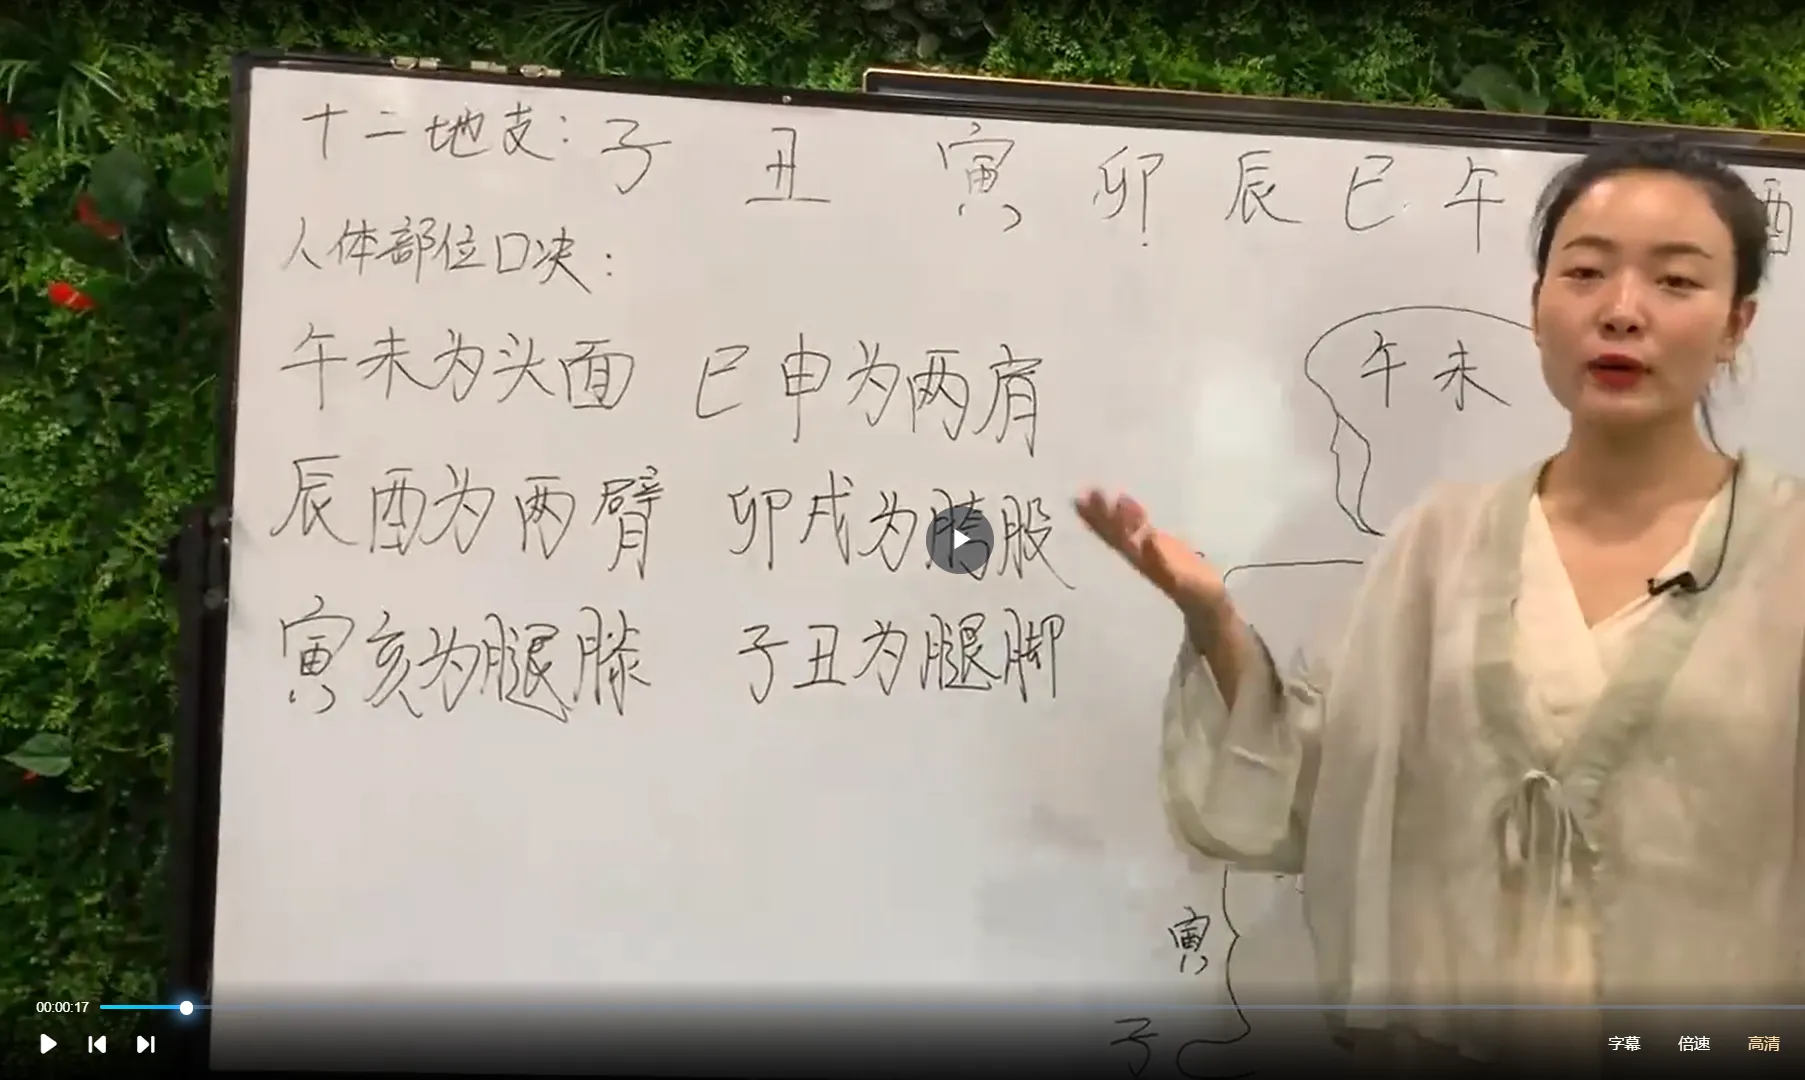 十二地支：子 丑 寅 卯 辰 巳 午 酉
人体部位口决：
午未为头面 巳申为两肩
辰酉为两臂 卯戌为胯股
寅亥为腿膝 子丑为腿脚
午未
寅
子
00:00:17
字幕 倍速 高清